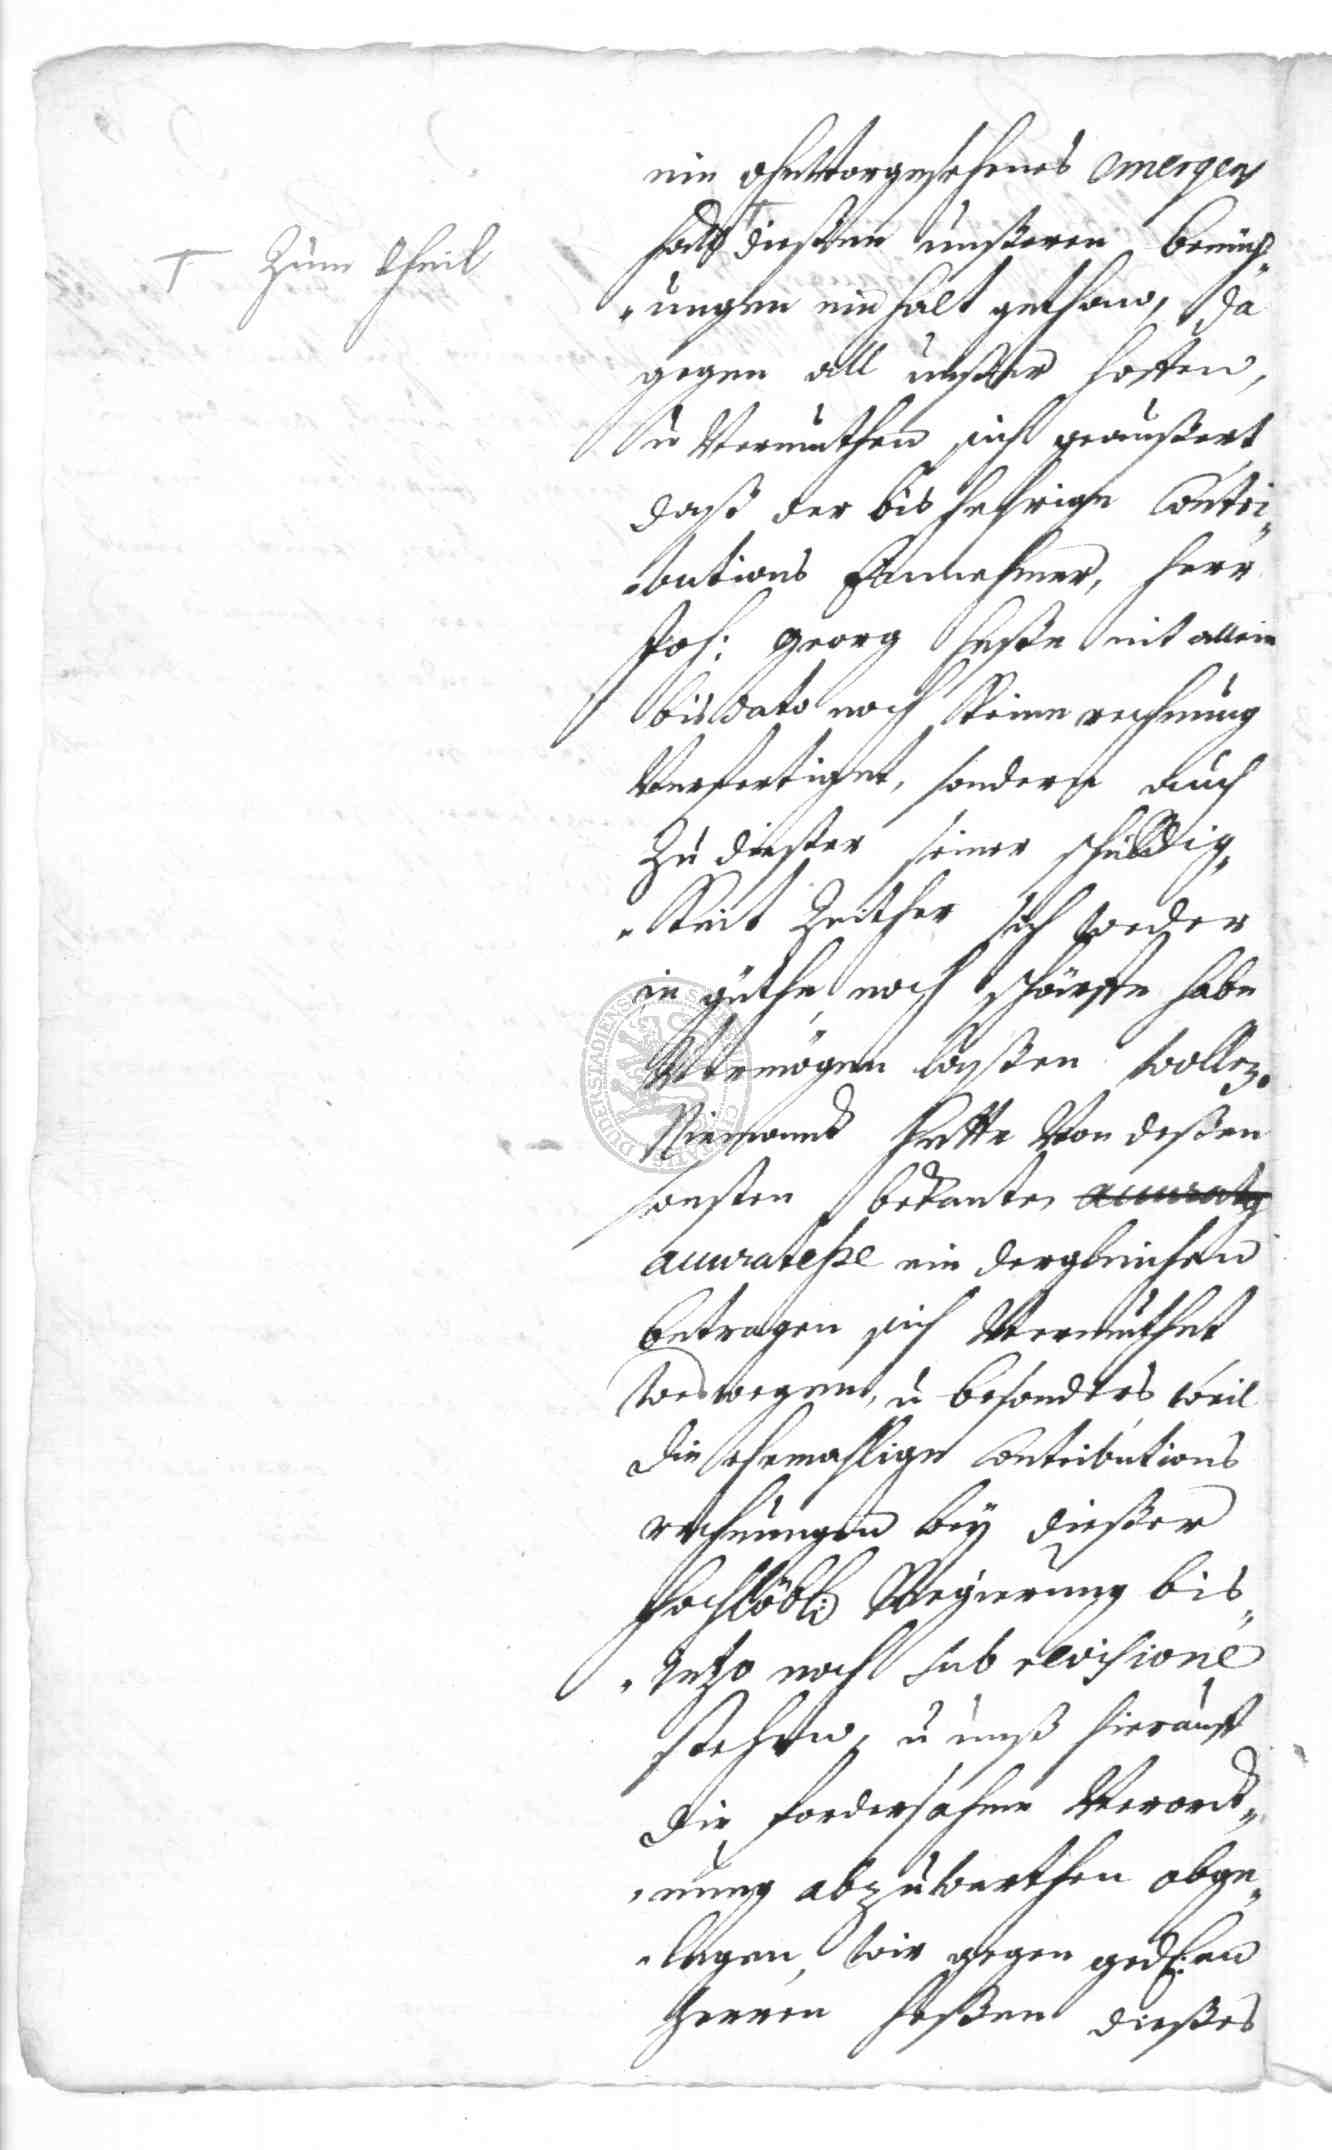 ein ohnvorgesehenes emergens
hatt ⊤ dießen unßeren bemüh„
„ungen einhalt gethan, da
⊤ Zum theil
gegen all unßer hoffen,
u Vermuthen sich geaußert
daß der bishehrige Contri„
„butions Einnehmer, Herr
Joh: Georg Heße nit allein
bis dato noch keine rechnung
Verfertiget, sondern auch
Zu dießer seiner schuldig„
„keit Zeither sich weder
in güthe, noch schärffe habe
Vermögen laßen wollen.
Niemandt hette Von deßen
sonsten bekanten accurate
accurateße ein dergleichen
betragen sich Vermuthet
weswegen, u besonders weil
die ehemahlige Contributions
rechnungen bey dießer
Hochlöbl: Regierung bis„
„Jetzo noch sub revisione
stehen, u unß hierauff
die fordersahme Verordt„
„nung abzuwarthen obge„
„legen, wir gegen gedl:en
Herren Heßen dießes
DUDERSTADIENSIS